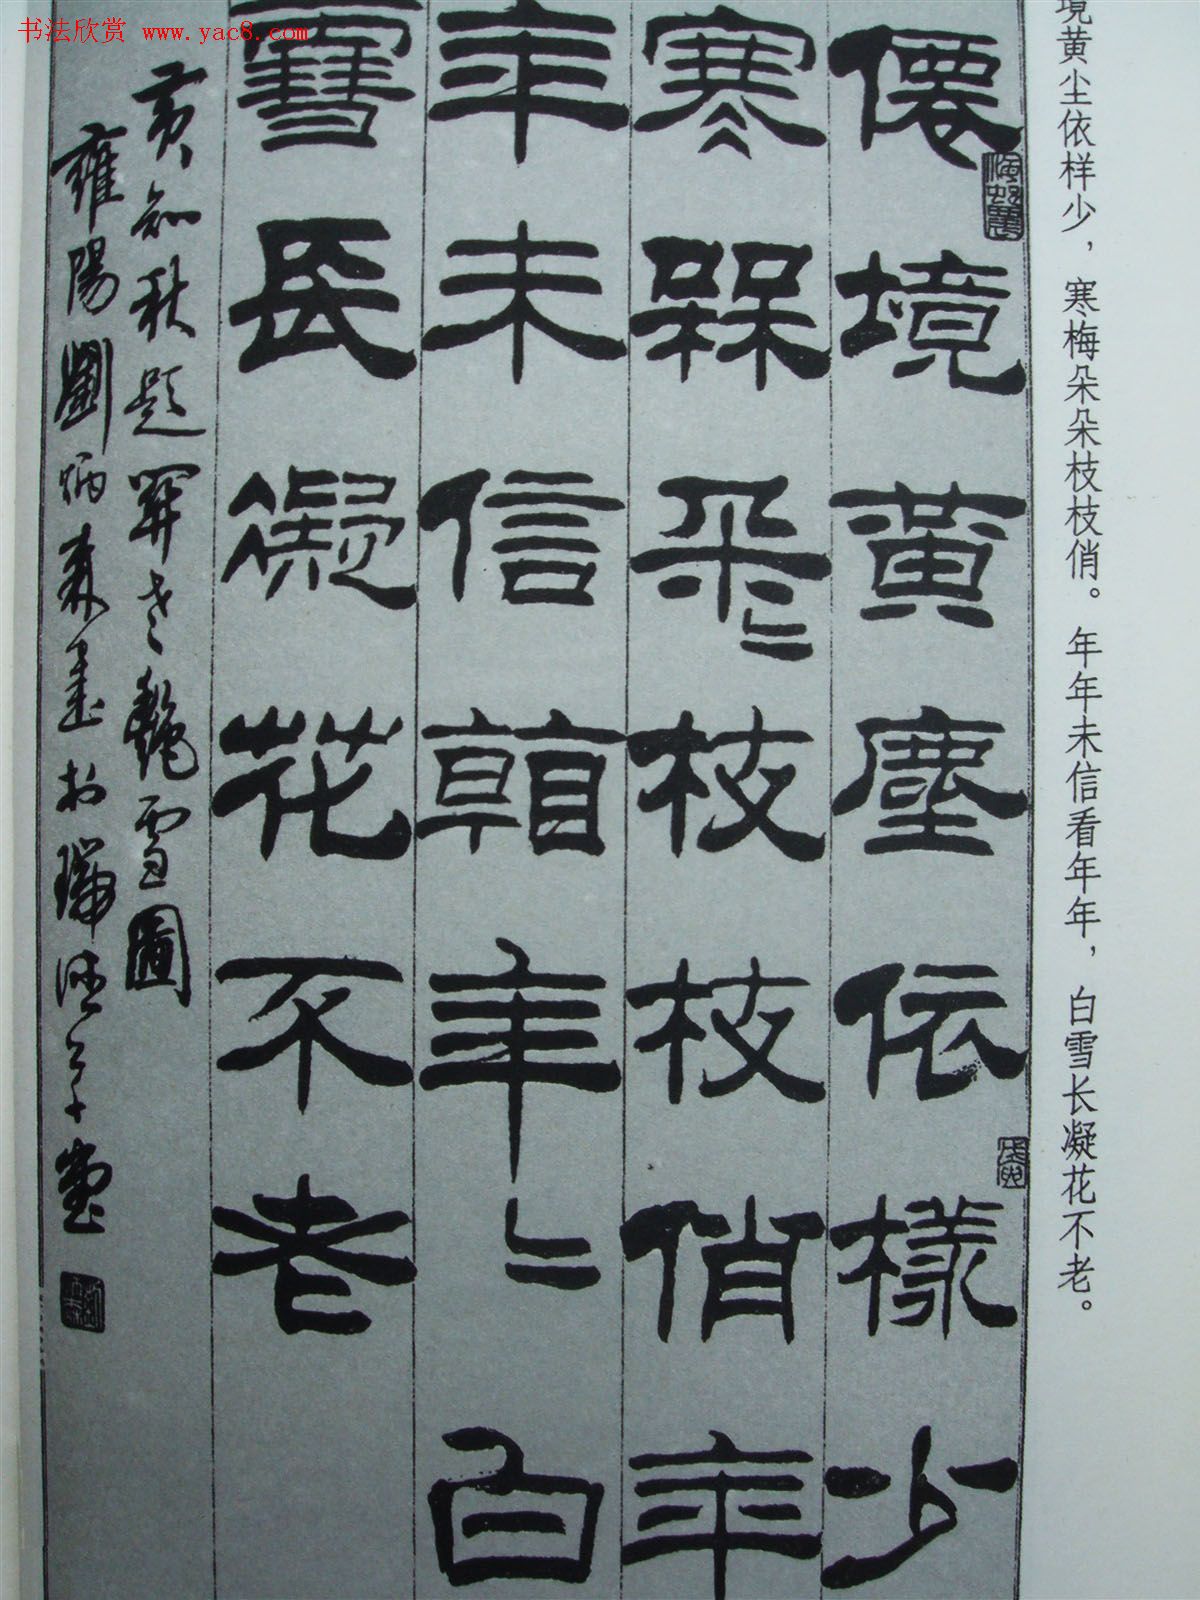 书法欣赏 www.yac8.com
境黄尘依样少，寒梅朵朵枝枝俏。年年未信看年年，白雪长凝花不老。
僊境黄塵依樣少
寒槑朵〻枝枝俏年
年未信翰年〻白
雪長凝花不老
黄知秋題羣芳艷雪圖
雍陽劉炳森書於